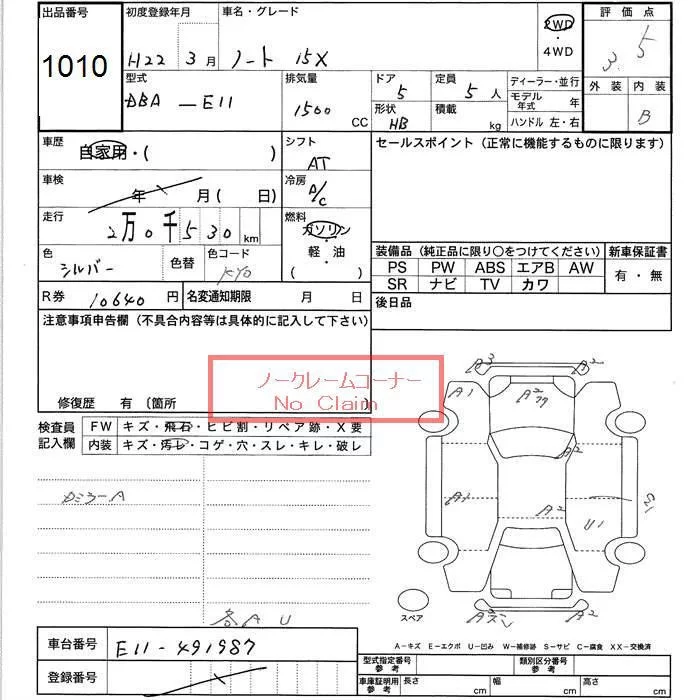 出品番号 初度登録年月 車名・グレード 2WD・4WD 評価点
1010 H22 3月 ノート 15X 3.5
型式 排気量 ドア 定員 ディーラー・並行 外装 内装
DBA-E11 1500 CC 5 5人 モデル年式 年
形状 積載 ハンドル 左・右
HB kg B
車歴 自家用・( ) シフト AT セールスポイント（正常に機能するものに限ります）
車検 年 月( 日) 冷房 A/C
走行 2万0千530km 燃料 ガソリン・軽油 ( )
色 シルバー 色替 色コード KY0
装備品（純正品に限り○をつけてください） 新車保証書
PS PW ABS エアB AW 有・無
SR ナビ TV カワ
R券 10640円 名変通知期限 月 日 後日品
注意事項申告欄（不具合内容等は具体的に記入して下さい）
ノークレームコーナー
No Claim
修復歴 有 〔箇所
検査員記入欄 FW キズ・飛石・ヒビ割・リペア跡・X要
内装 キズ・汚レ・コゲ・穴・スレ・キレ・破レ
カミラーA
各A U
A3 A2
A1 A2
A2
A2 A2
U1
A2
スペア
A-キズ E-エクボ U-凹み W-補修跡 S-サビ C-腐食 XX-交換済
車台番号 E11-491987
登録番号
型式指定番号 参考 類別区分番号 参考
車庫証明用 参考 長さ cm 幅 cm 高さ cm